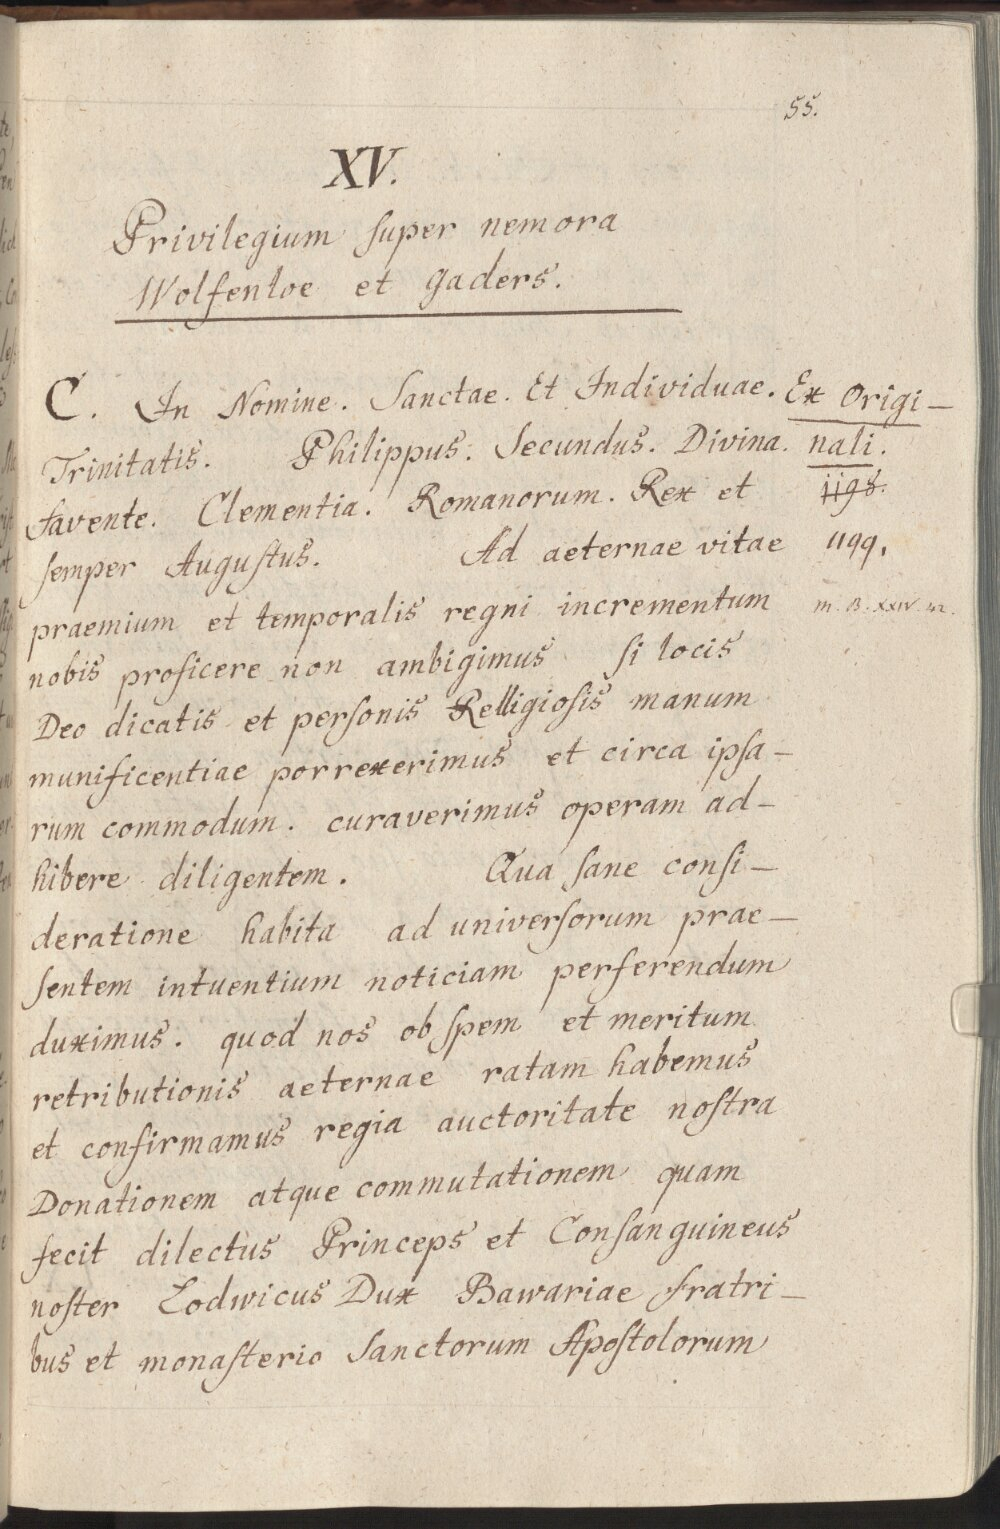 55.
XV.
Privilegium super nemora
Wolfenloe et Gaders.
C. In Nomine. Sanctae. Et Individuae.
Trinitatis. Philippus. Secundus. Divina.
favente. Clementia. Romanorum. Rex et
semper Augustus. Ad aeternae vitae
praemium et temporalis regni incrementum
nobis proficere non ambigimus si locis
Deo dicatis et personis Relligiosis manum
munificentiae porrexerimus et circa ipsa-
rum commodum. curaverimus operam ad-
hibere diligentem. Qua sane consi-
deratione habita ad universorum prae-
sentem intuentium noticiam perferendum
duximus. quod nos ob spem et meritum
retributionis aeternae ratam habemus
et confirmamus regia auctoritate nostra
Donationem atque commutationem quam
fecit dilectus Princeps et Consanguineus
noster Lodwicus Dux Bawariae fratri-
bus et monasterio Sanctorum Apostolorum
Ex Origi-
nali.
1198.
1199.
m. B. XXIV.